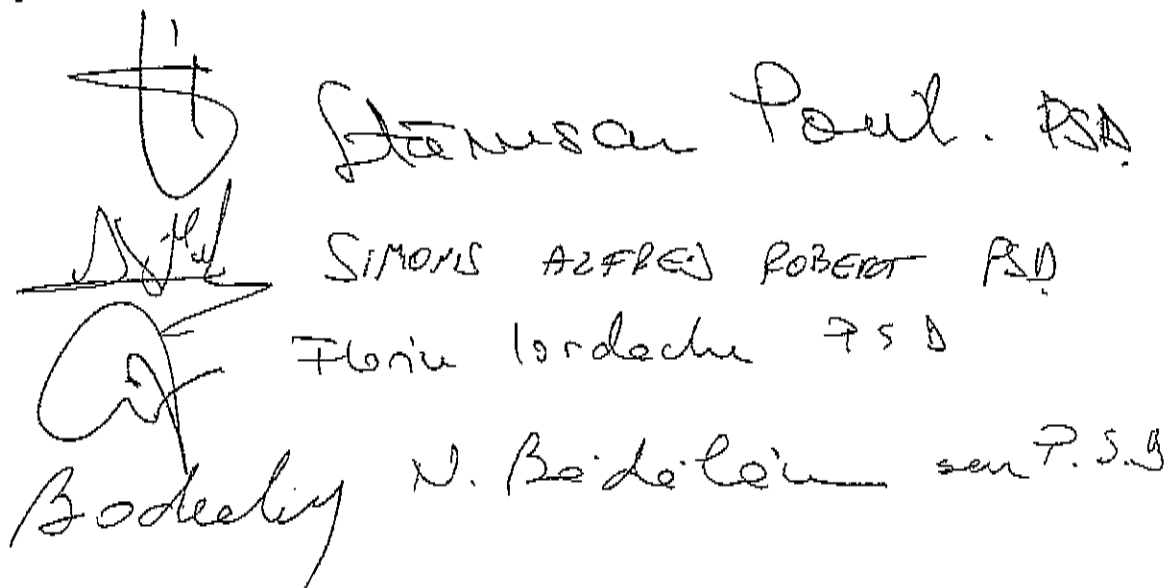 Stănescu Paul. PSD
SIMONIS ALFRED ROBERT PSD
Florin Iordache PSD
N. Bădălău sen P.S.D